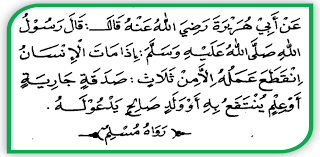 عَنْ أَبِي هُرَيْرَةَ رَضِيَ اللهُ عَنْهُ قَالَ : قَالَ رَسُوْلُ
اللهِ صَلَّى اللهُ عَلَيْهِ وَسَلَّمَ : إِذَا مَاتَ الْإِنْسَانُ
اِنْقَطَعَ عَمَلُهُ اِلَّا مِنْ ثَلَاثٍ : صَدَقَةٍ جَارِيَةٍ
أَوْ عِلْمٍ يُنْتَفَعُ بِهِ أَوْ وَلَدٍ صَالِحٍ يَدْعُوْلَهُ .
رَوَاهُ مُسْلِمٌ